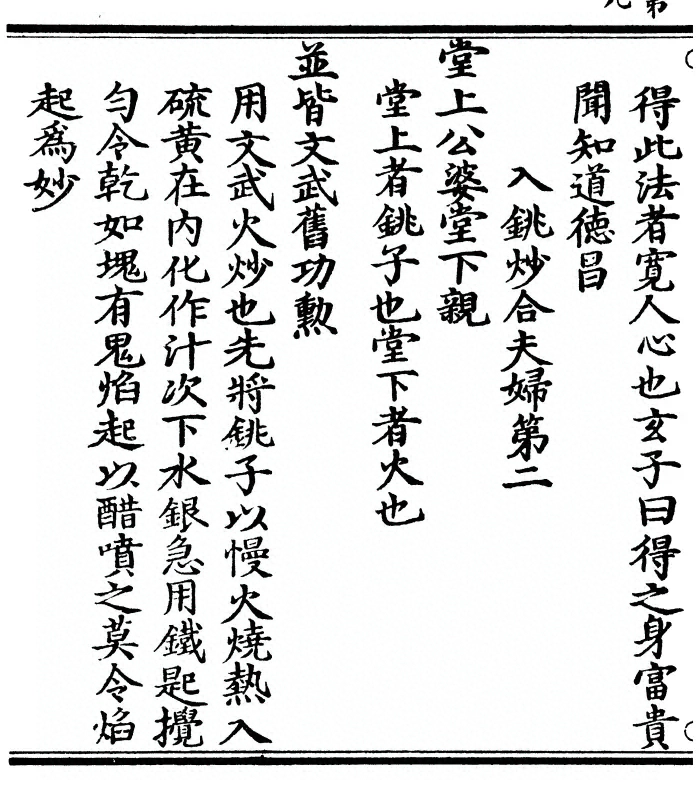 得此法者寛人心也玄子曰得之身富貴
聞知道德昌
入銚炒合夫婦第二
堂上公婆堂下親
堂上者銚子也堂下者火也
並皆文武舊功勲
用文武火炒也先將銚子以慢火燒熱入
硫黄在内化作汁次下水銀急用鐵匙攪
勻令乾如塊有鬼焰起以醋噴之莫令焰
起爲妙